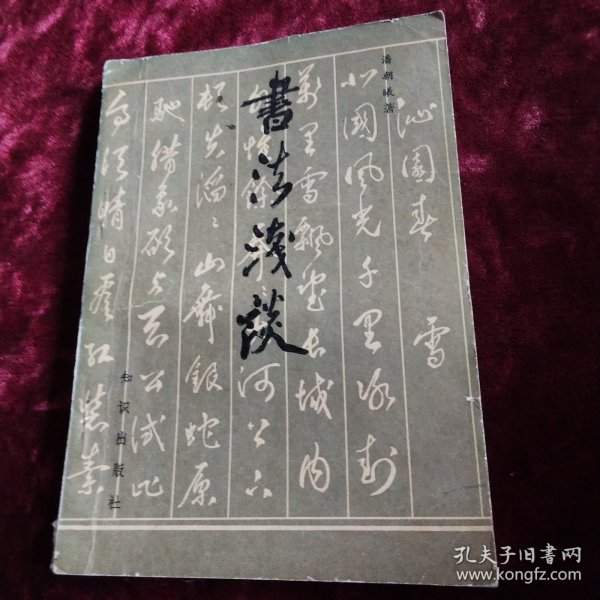 潘朝曦著
書法淺談
沁園春 雪
北國风光千里冰封
萬里雪飘望长城内
河上下
頓失滔〻山舞银蛇原
驰腊象欲与天公试比
高须晴日看红装素
知识出版社
孔夫子旧书网
www.kongfz.com